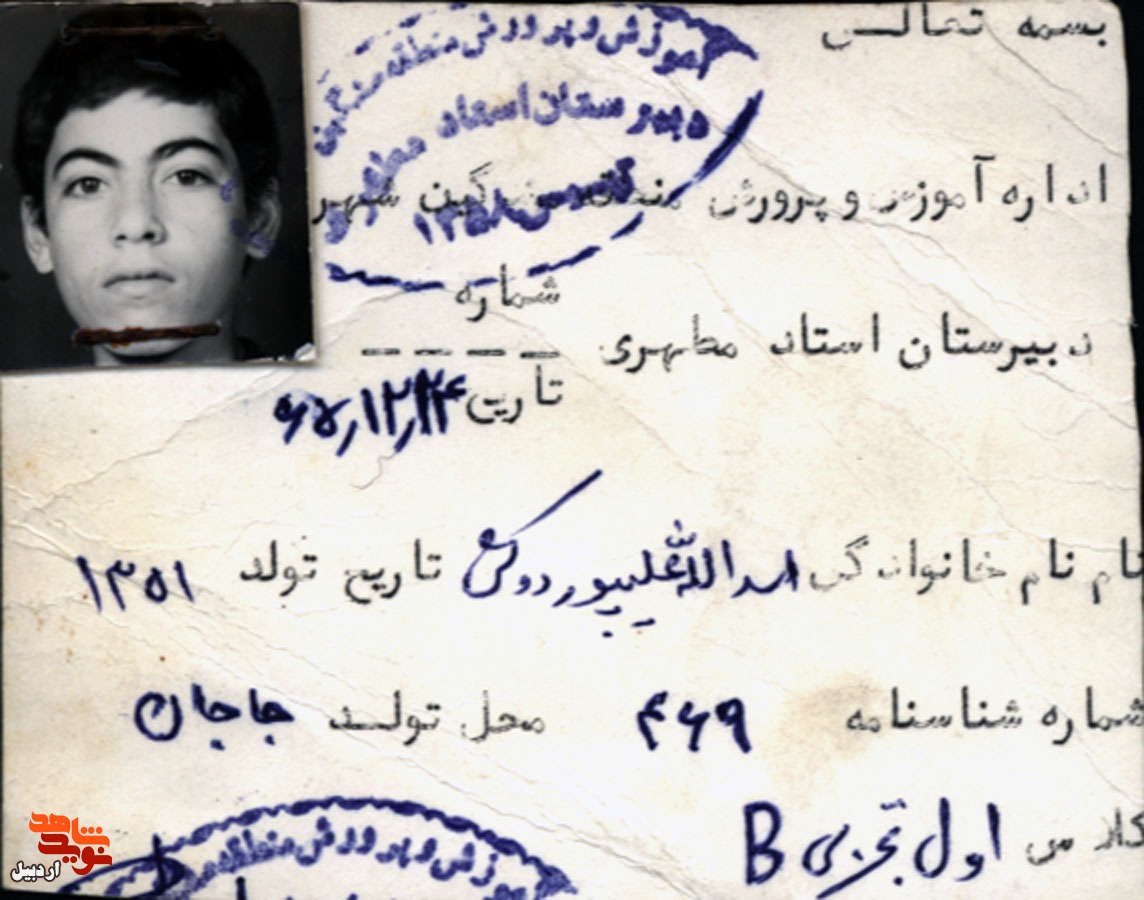 بسمه تعالی
اداره آموزش و پرورش منطقه مشگین شهر
آموزش و پرورش منطقه مشگین
دبیرستان استاد مطهری
تأسیس ۱۳۵۸
دبیرستان استاد مطهری شماره -----
تاریخ ۶۵/۱۲/۱۴
نام نام خانوادگی اسدالله علیپور تاریخ تولد ۱۳۵۱
شماره شناسنامه ۴۶۹ محل تولد جاجان
کلاس اول تجربی B
آموزش و پرورش منطقه
نوید شاهد
اردبیل